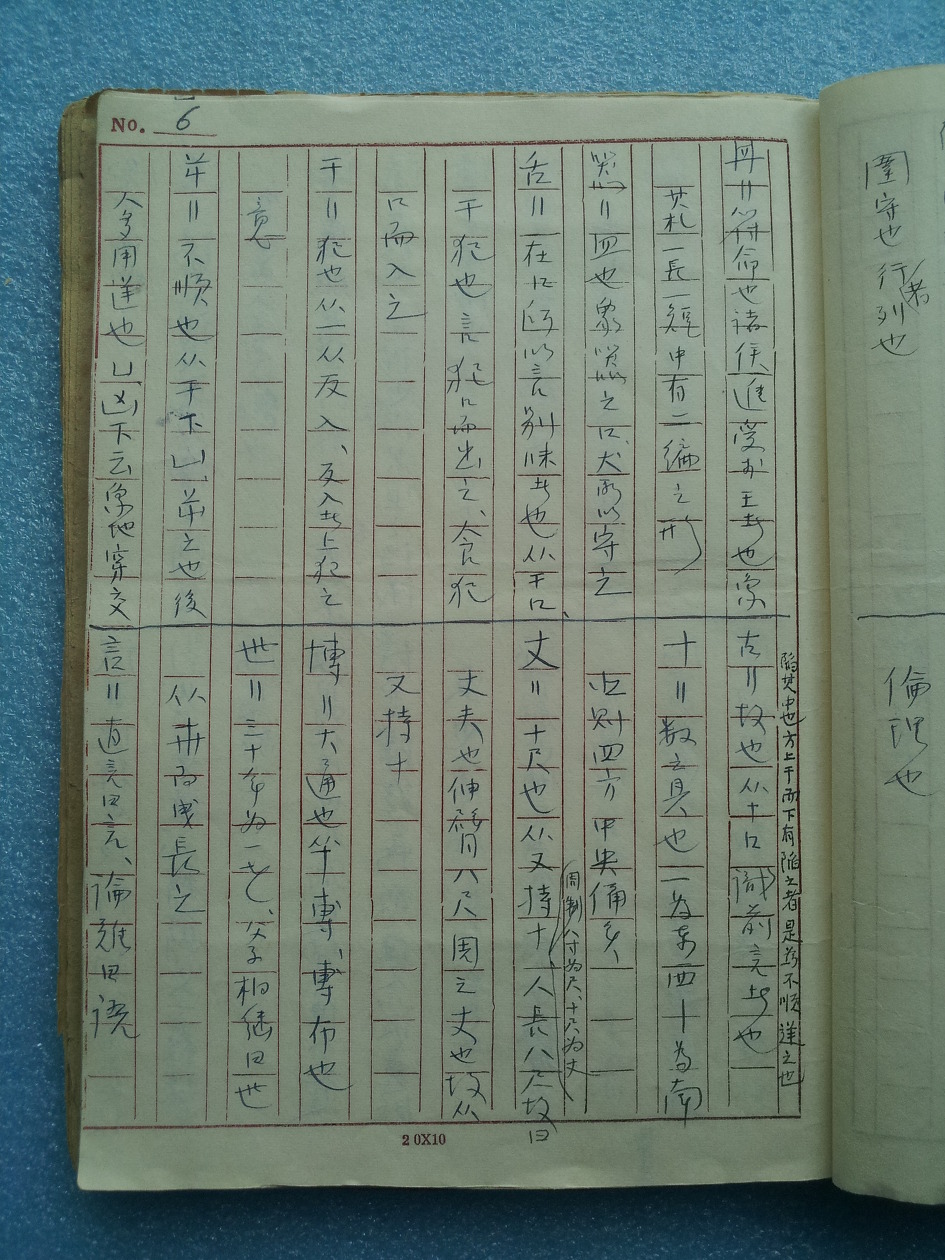 圍守也 行列也
者
倫理也
No. 6
冊〓符命也諸侯進受於王者也象
其札一長一短中有二編之形
器〓皿也象器之口、犬所以守之
舌〓在口所以言別味者也从干口、
干犯也言犯口而出之、食犯
口而入之
干〓犯也从一从反入、反入者上犯之
意
屰〓不順也从干下凵屰之也後
人多用逆也凵凶下云象地穿交
陷其中也方上干而下有陷之者是為不順逆之也
古〓故也从十口識前言者也
十〓数之具也一為東西十為南
北則四方中央備矣、
周制八寸為尺、十尺為丈
丈〓十尺也从又持十、人長八尺故曰
丈夫也伸臂八尺周之丈也故从
又持十
博〓大通也从十尃、尃布也
世〓三十年為一世、父子相継曰世
从卅而曳長之
言〓直言曰言、論難曰語
20X10